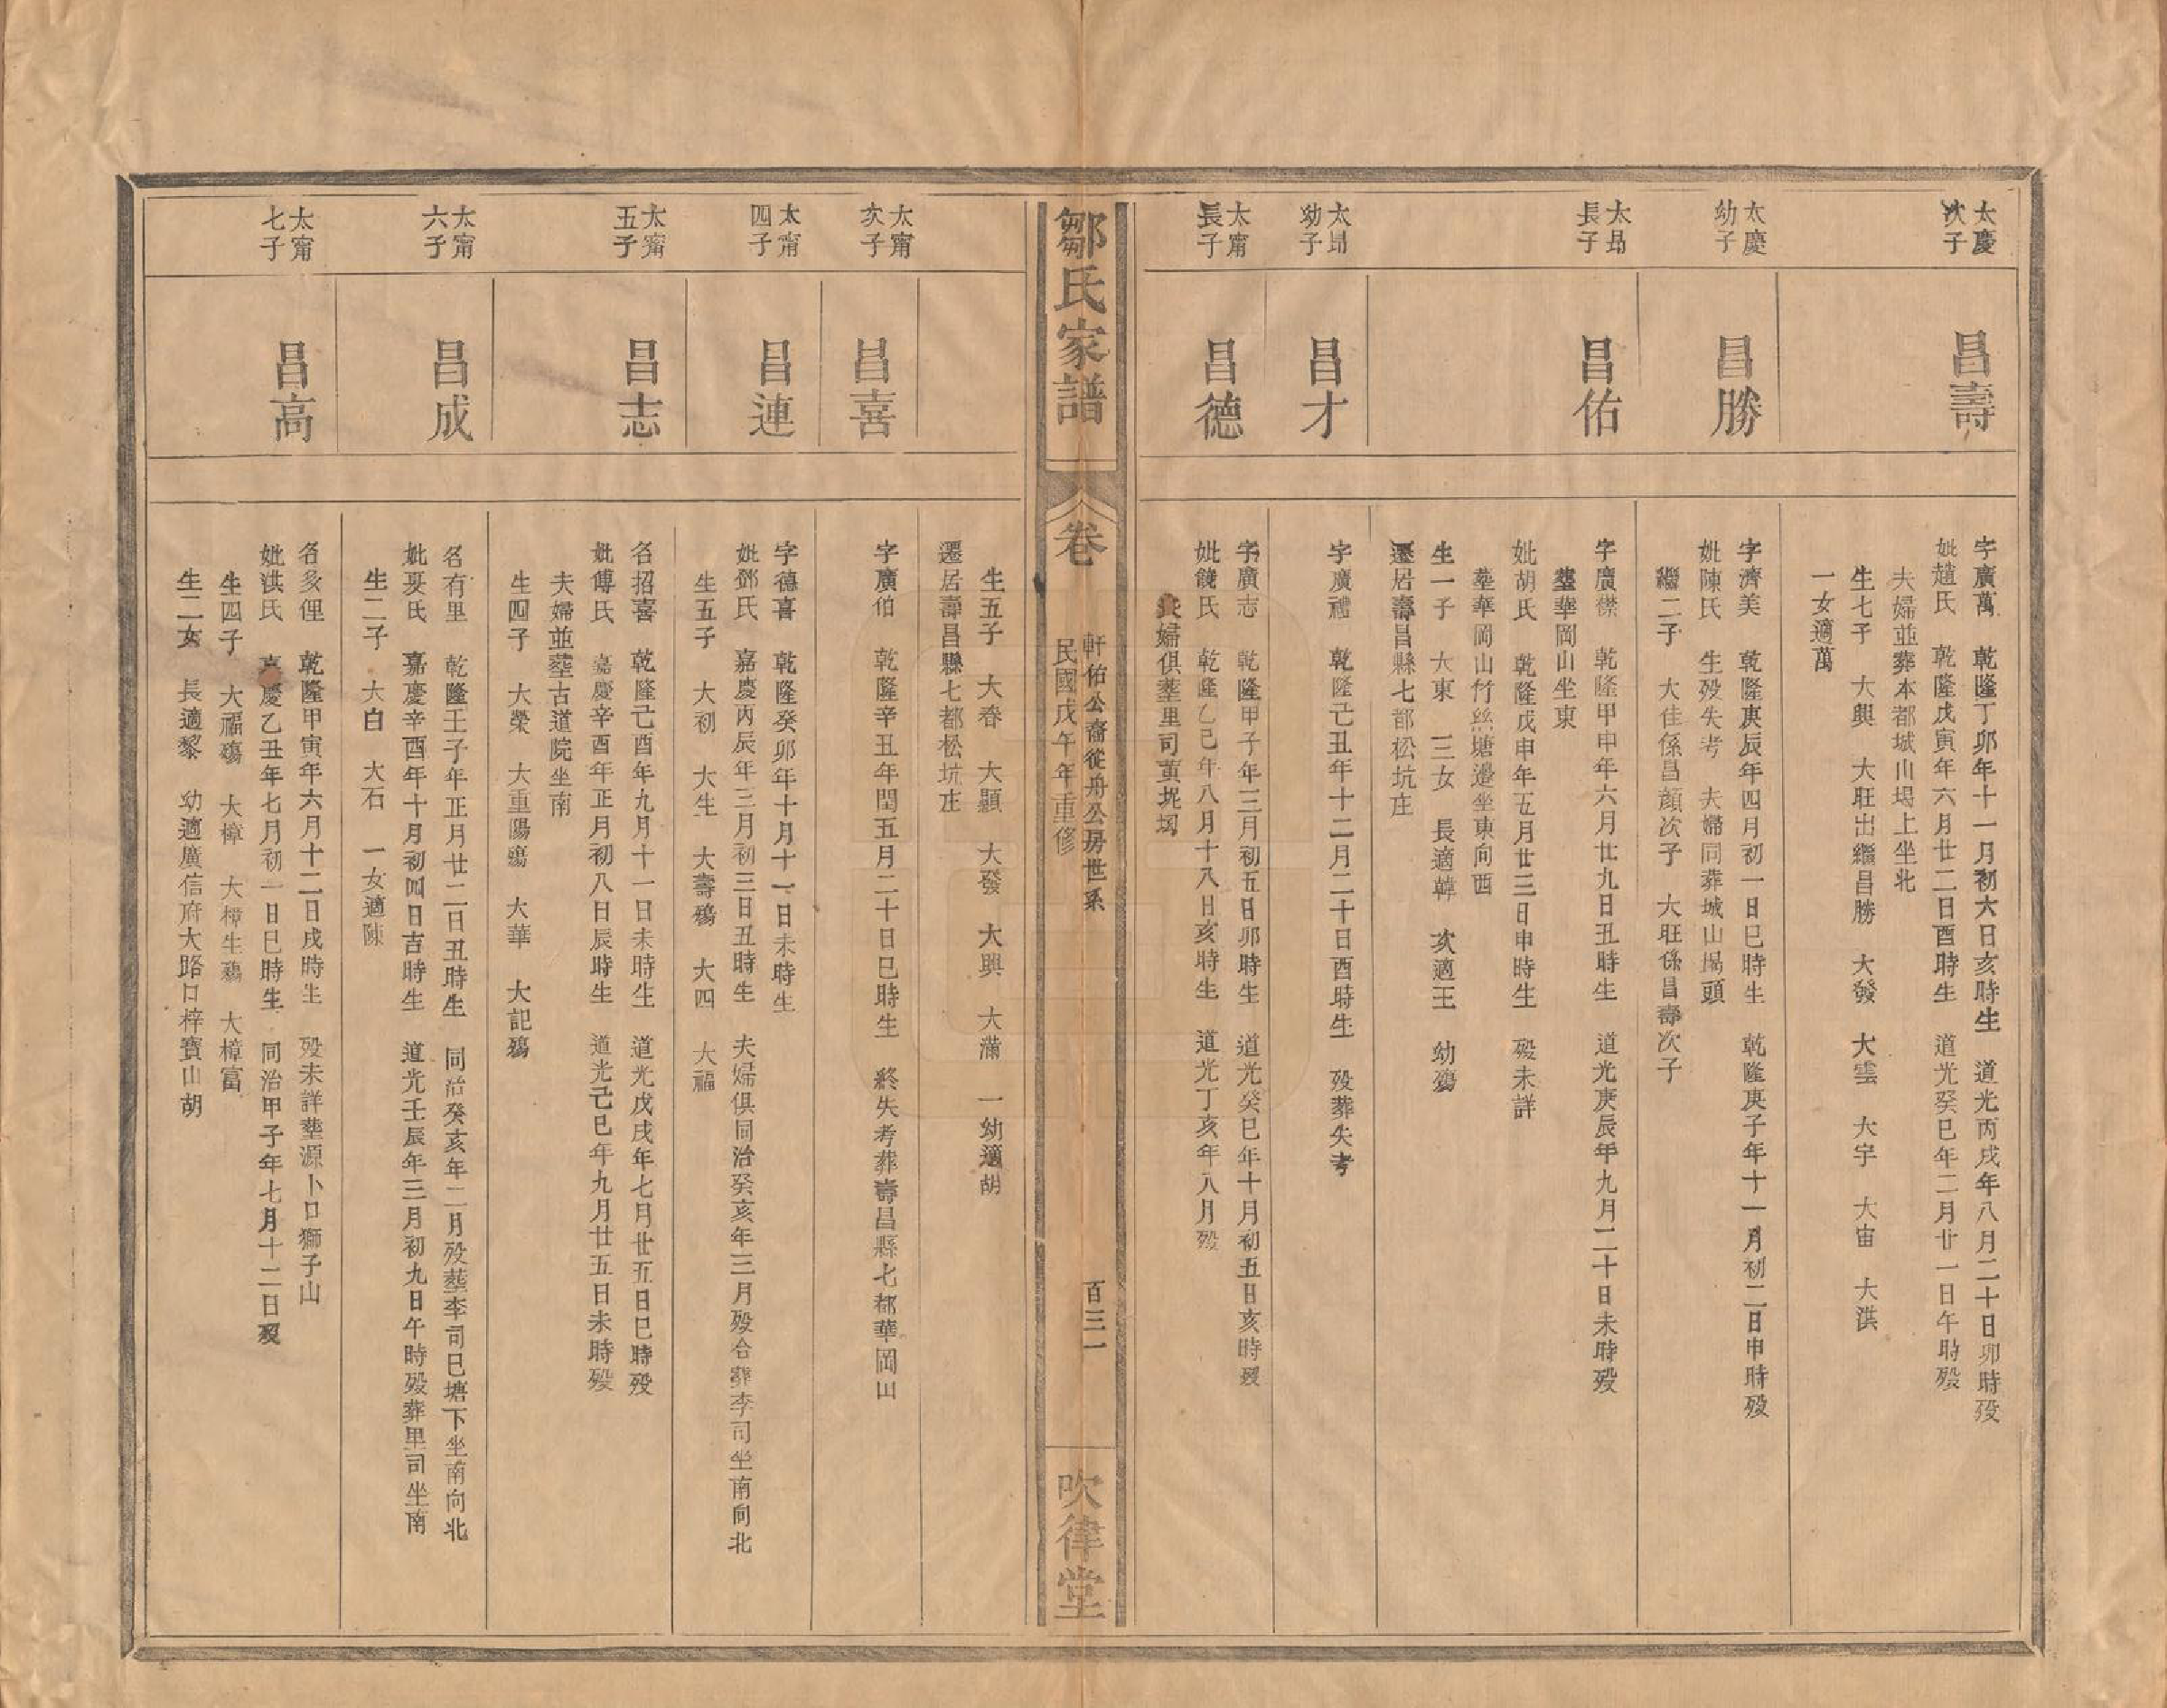 太慶次子
昌壽
字廣萬 乾隆丁卯年十一月初六日亥時生 道光丙戌年八月二十日卯時殁
妣趙氏 乾隆戊寅年六月廿二日酉時生 道光癸巳年二月廿一日午時殁
夫婦並葬本都城山塌上坐北
生七子 大興 大旺出繼昌勝 大發 大雲 大宇 大宙 大洪
一女適萬
太慶幼子
昌勝
字濟美 乾隆庚辰年四月初一日巳時生 乾隆庚子年十一月初二日申時殁
妣陳氏 生殁失考 夫婦同葬城山塌頭
繼二子 大佳係昌顔次子 大旺係昌壽次子
太昂長子
昌佑
字廣襟 乾隆甲申年六月廿九日丑時生 道光庚辰年九月二十日未時殁
塟華岡山坐東
妣胡氏 乾隆戊申年五月廿三日申時生 殁未詳
塟華岡山竹絲塘邊坐東向西
生一子 大東 三女 長適韓 次適王 幼殤
遷居壽昌縣七都松坑庄
太昂幼子
昌才
字廣禮 乾隆己丑年十二月二十日酉時生 殁葬失考
太甯長子
昌德
字廣志 乾隆甲子年三月初五日卯時生 道光癸巳年十月初五日亥時殁
妣饒氏 乾隆乙己年八月十八日亥時生 道光丁亥年八月殁
夫婦俱塟里司黃坭塢
鄒氏家譜
卷
軒佑公裔從舟公房世系
民國戊午年重修
百三一
吹律堂
生五子 大春 大顯 大發 大興 大滿 一幼適胡
遷居壽昌縣七都松坑庄
太甯次子
昌喜
字廣伯 乾隆辛丑年閏五月二十日巳時生 終失考葬壽昌縣七都華岡山
太甯四子
昌連
字德喜 乾隆癸卯年十月十一日未時生
妣鄧氏 嘉慶丙辰年三月初三日丑時生 夫婦俱同治癸亥年三月殁合葬李司坐南向北
生五子 大初 大生 大壽殤 大四 大福
太甯五子
昌志
名招喜 乾隆己酉年九月十一日未時生 道光戊戌年七月廿五日巳時殁
妣傅氏 嘉慶辛酉年正月初八日辰時生 道光己巳年九月廿五日未時殁
夫婦並塟古道院坐南
生四子 大榮 大重陽殤 大華 大記殤
太甯六子
昌成
名有里 乾隆壬子年正月廿二日丑時生 同治癸亥年二月殁塟李司巳塘下坐南向北
妣𡝭氏 嘉慶辛酉年十月初四日吉時生 道光壬辰年三月初九日午時殁葬里司坐南
生二子 大白 大石 一女適陳
太甯七子
昌高
名亥俚 乾隆甲寅年六月十二日戌時生 殁未詳塟源卜口獅子山
妣洪氏 嘉慶乙丑年七月初一日巳時生 同治甲子年七月十二日殁
生四子 大福殤 大樟 大樟生殤 大樟富
生二女 長適黎 幼適廣信府大路口梓寶山胡